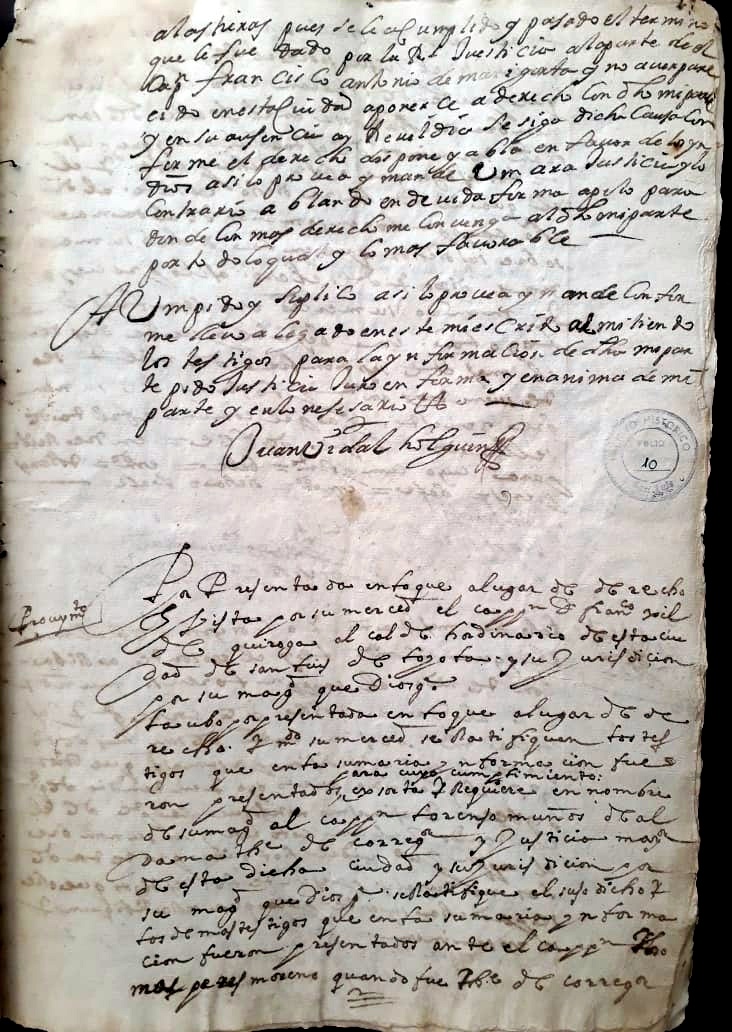 alas heras pues sele a Cumplido y pasado el termino
que le fue dado por la Rl Justicia ala parte de el
Capn franCisco antonio de y no aver pare
cido enesta Ciudad aponerce a derecho Con dho mi parte
y en su ausenCia y Reveldia se siga dicha Causa Con
ferme el derecho dispone y abla en favor de lo yn
asi lo provea y mande Um ara Justicia y lo
Contrario ablando en devida forma apelo para
donde Con mas derecho me Convenga al dho mi parte
por todo lo qual y lo mas favorable
A Um pido y suplico asi lo provea y mande Confor
me llevo alegado en este mi esCrito admitiendo
los testigos para la ynformaCion de dho mi par
te pido Justicia Juro en forma y en anima de mi
parte y en lo nesesario
Juan Vidal holguin
ARCHIVO HISTORICO
FOLIO
10
Proveymto
Por Presentada en lo que a lugar de derecho
Vista por su merced el cappn Dn franco xil
de quiroga alcalde hordinario de esta ciu
dad de san luis de loyola y su Jurisdicion
por su magd que Dios ge
La ubo por presentada en lo que a lugar de de
recho. Y mdo su merced se Ratifiquen los tes
tigos que en la sumaria ynformacion fue
para cuyo cumplimiento:
ron presentados, exsorta Y Requiere en nombre
de su magd al cappn lorenso muños de al
dama the de corregor y Justicia mayor
de esta dicha ciudad y su Jurisdicion por
su magd que dios ge se Ratifique el suso dicho Y
los demas testigos que en la sumaria ynforma
cion fueron presentados ante el cappn Tho
mas peres moreno quando fue The de corregor